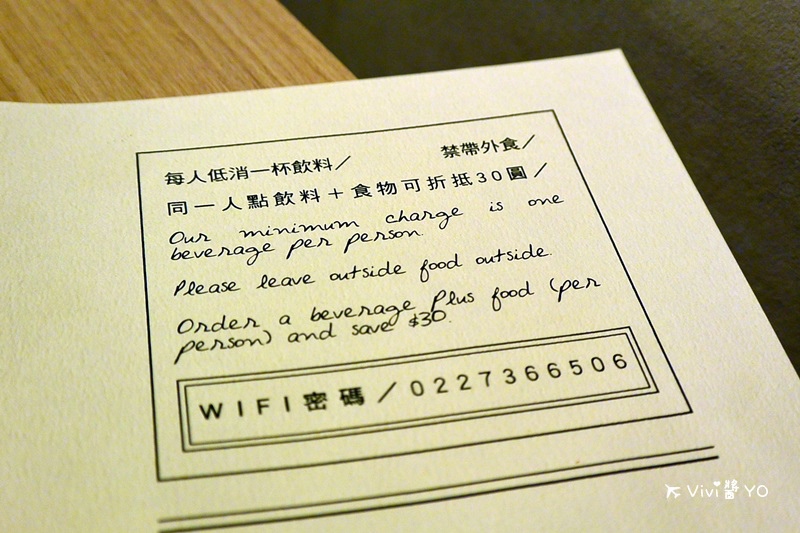 每人低消一杯飲料／ 禁帶外食／
同一人點飲料＋食物可折抵30圓／
Our minimum charge is one
beverage per person.
Please leave outside food outside.
Order a beverage Plus food (per
person) and save $30.
WIFI密碼／0227366506
Vivi醬YO